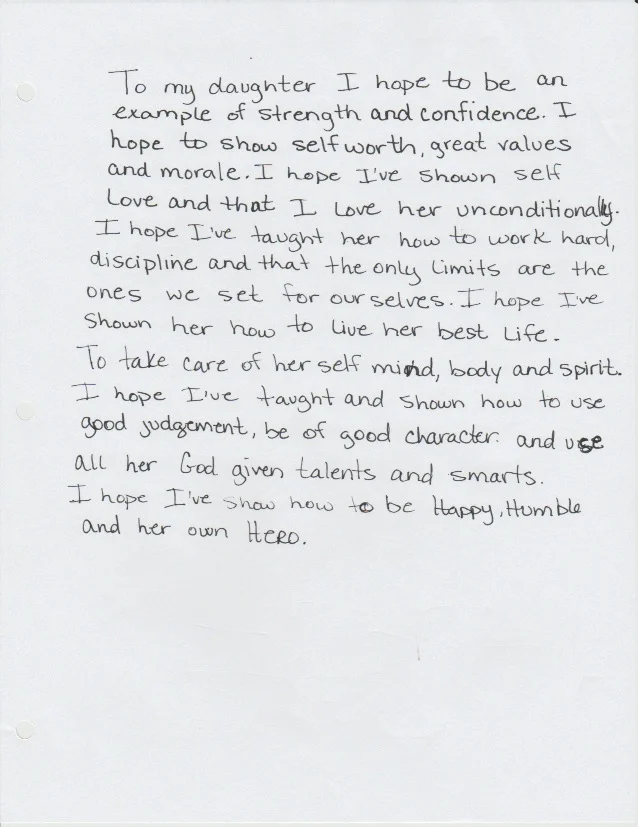 To my daughter I hope to be an
example of strength and confidence. I
hope to show self worth, great values
and morale. I hope I've shown self
Love and that I Love her unconditionally.
I hope I've taught her how to work hard,
discipline and that the only Limits are the
ones we set for ourselves. I hope I've
Shown her how to Live her best Life.
To take care of her self mind, body and spirit.
I hope I've taught and shown how to use
good judgement, be of good character. and use
all her God given talents and smarts.
I hope I've show how to be Happy, Humble
and her own HERO.